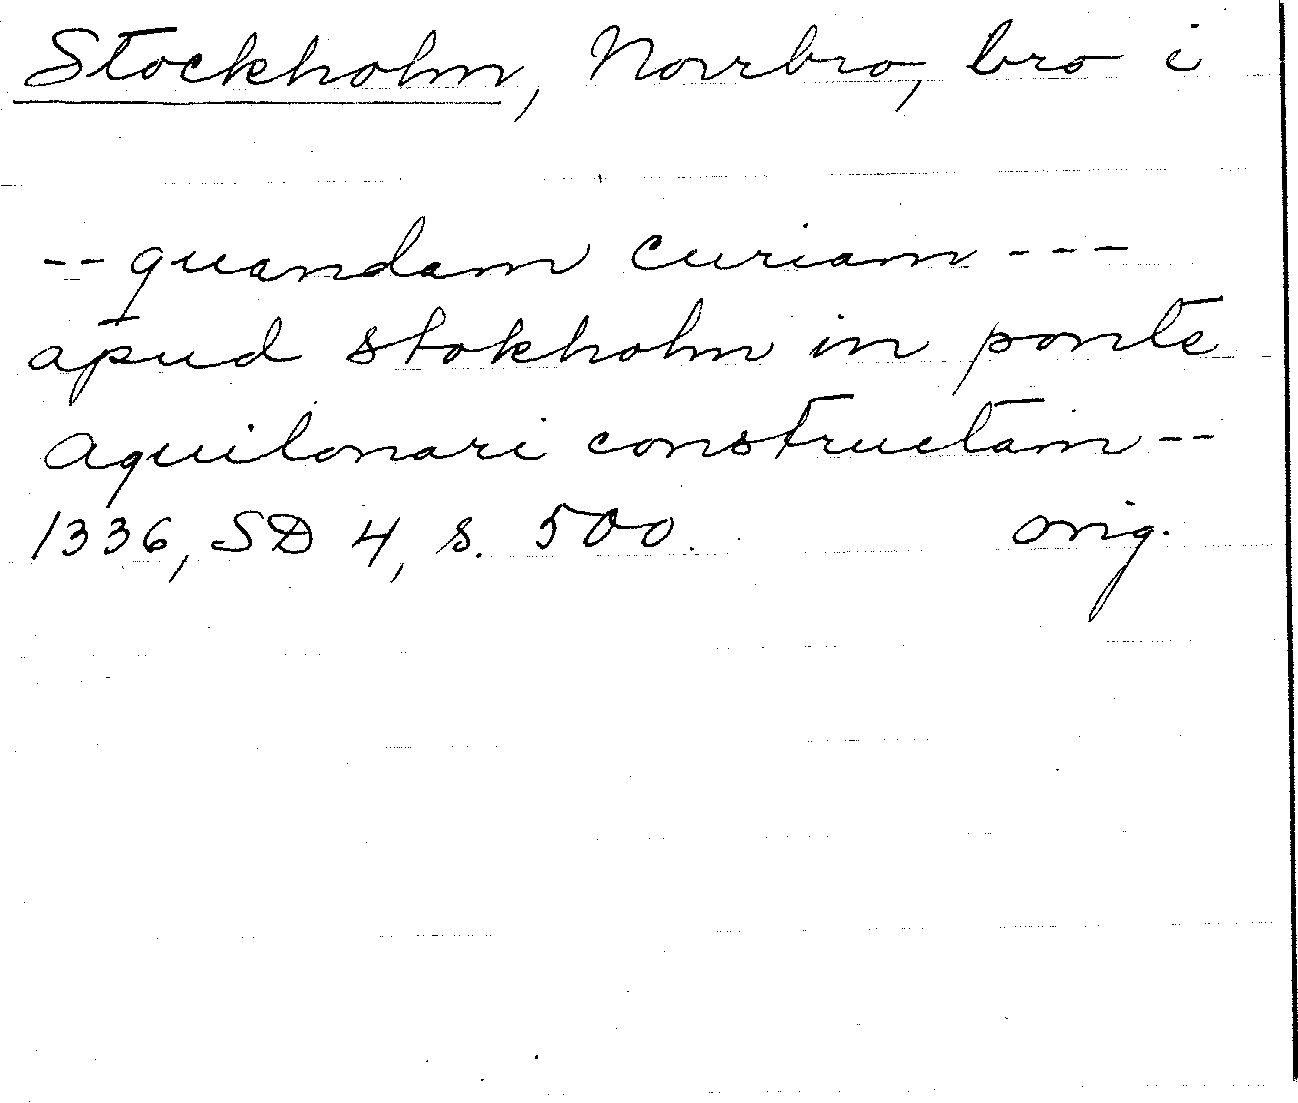 Stockholm, Norrbro, bro i
-- quandam curiam ---
apud stokholm in ponte
aquilonari constructam --
1336, SD 4, s. 500. orig.